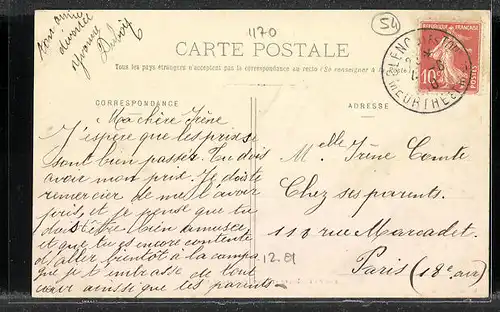 Ton amie
dévouée
Yvonne
1170
54
CARTE POSTALE
Tous les pays étrangers n'acceptent pas la correspondance au recto (Se renseigner à la Poste)
REPUBLIQUE FRANÇAISE
10
POSTES
BLENOD
MEURTHE
CORRESPONDANCE
ADRESSE
Ma chère Irène
J'espère que les prix se
sont bien passer. Tu dois
avoir mon prix. Je dois te
remercier de me l'avoir
pris, et je pense que tu
dois t'être bien amusée
et que tu es encore contente
d'aller bientôt à la campa
que je t'embrasse de tout
cœur ainsi que tes parents.
Melle Irène Comte
Chez ses parents.
113 rue Marcadet.
12.81
Paris (18e arr)